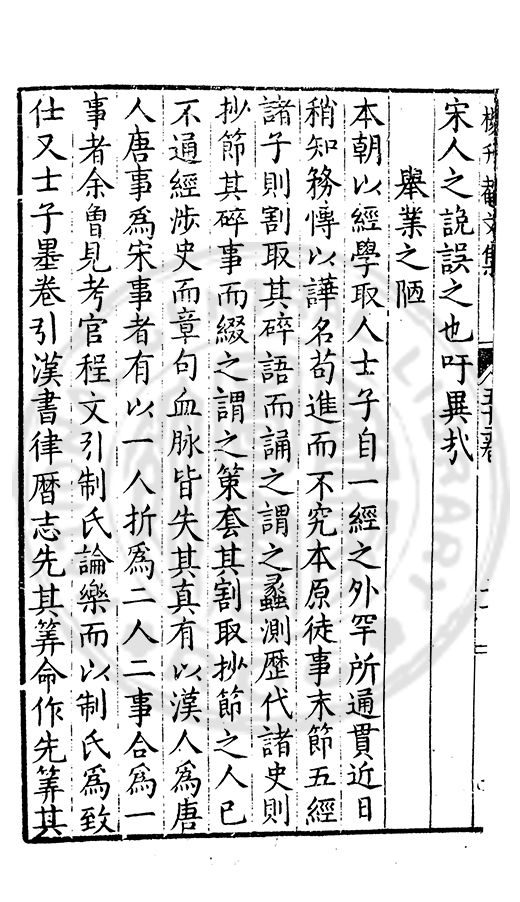 楊升菴文集 五十二卷
宋人之說誤之也吁異哉
舉業之陋
本朝以經學取人士子自一經之外罕所通貫近日
稍知務博以譁名苟進而不究本原徒事末節五經
諸子則割取其碎語而誦之謂之蠡測歷代諸史則
抄節其碎事而綴之謂之策套其割取抄節之人已
不通經涉史而章句血脉皆失其真有以漢人為唐
人唐事為宋事者有以一人折為二人二事合為一
事者余曾見考官程文引制氏論樂而以制氏為致
仕又士子墨卷引漢書律曆志先其筭命作先筭其
LIBRARY